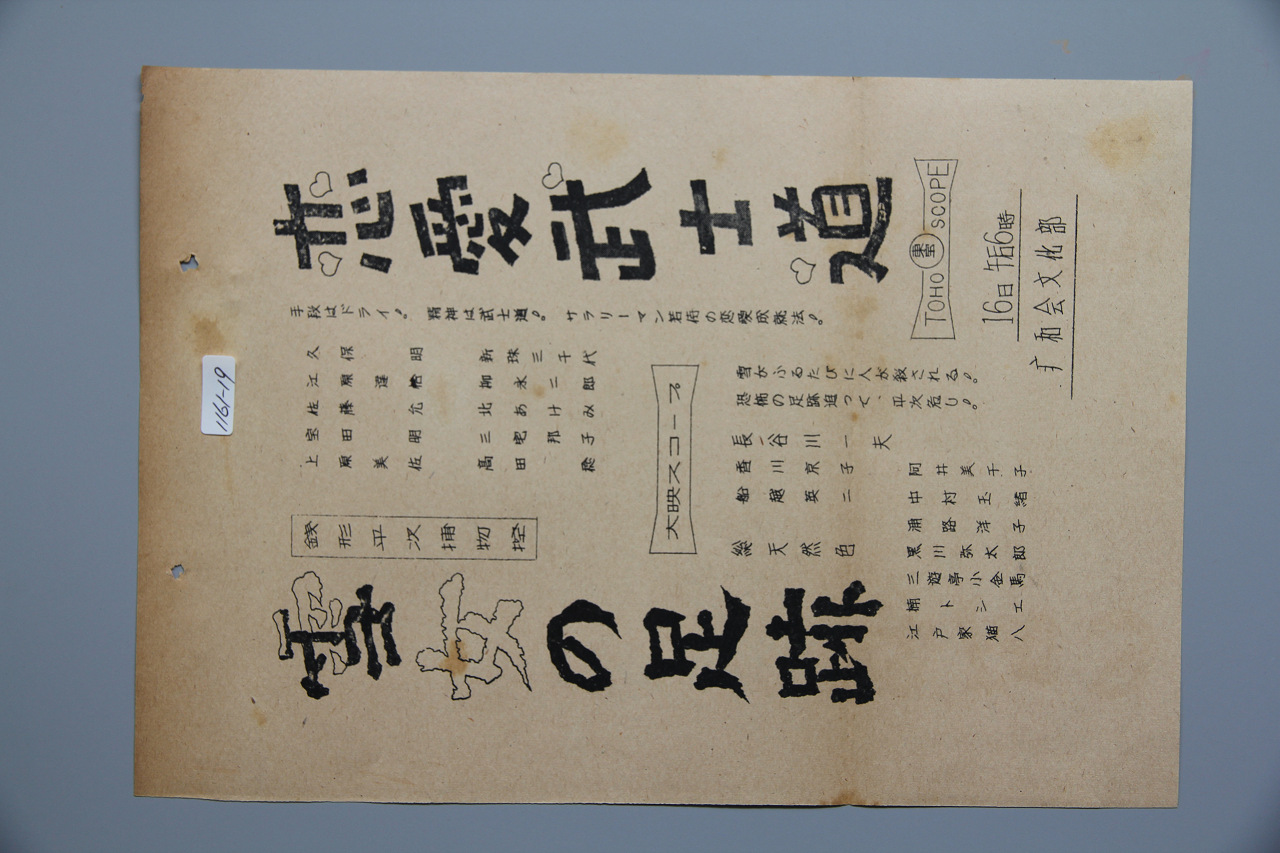 恋愛武士道
手段はドライ！　精神は武士道！　サラリーマン若侍の恋愛成就法！
久保明
江原達怡
佐藤允
宝田明
上原美佐
新珠三千代
柳永二郎
北あけみ
三宅邦子
高田稔
TOHO 東宝 SCOPE
16日午后6時
和会文化部
大映スコープ
雪がふるたびに人が殺される！
恐怖の足跡迫って、平次危し！
長谷川一夫
香川京子
船越英二
総天然色
阿井美千子
中村玉緒
浦路洋子
黒川弥太郎
三遊亭小金馬
楠トシエ
江戸家猫八
銭形平次捕物控
雪女の足跡
1161-19